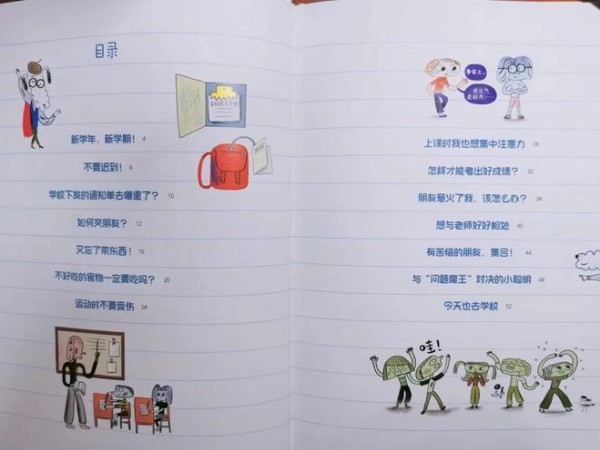 目录
新学年、新学期! 4
不要迟到!
学校下发的通知单去哪里了? 10
如何交朋友? 12
又忘了带东西! 16
不好吃的食物一定要吃吗? 20
运动时不要受伤 24
上课时我也想集中注意力 28
怎样才能考出好成绩? 32
朋友惹火了我,该怎么办?
想与老师好好相处 40
有苦恼的朋友,集合! 44
与“问题魔王”对决的小聪明 48
今天也去学校 52
哇!